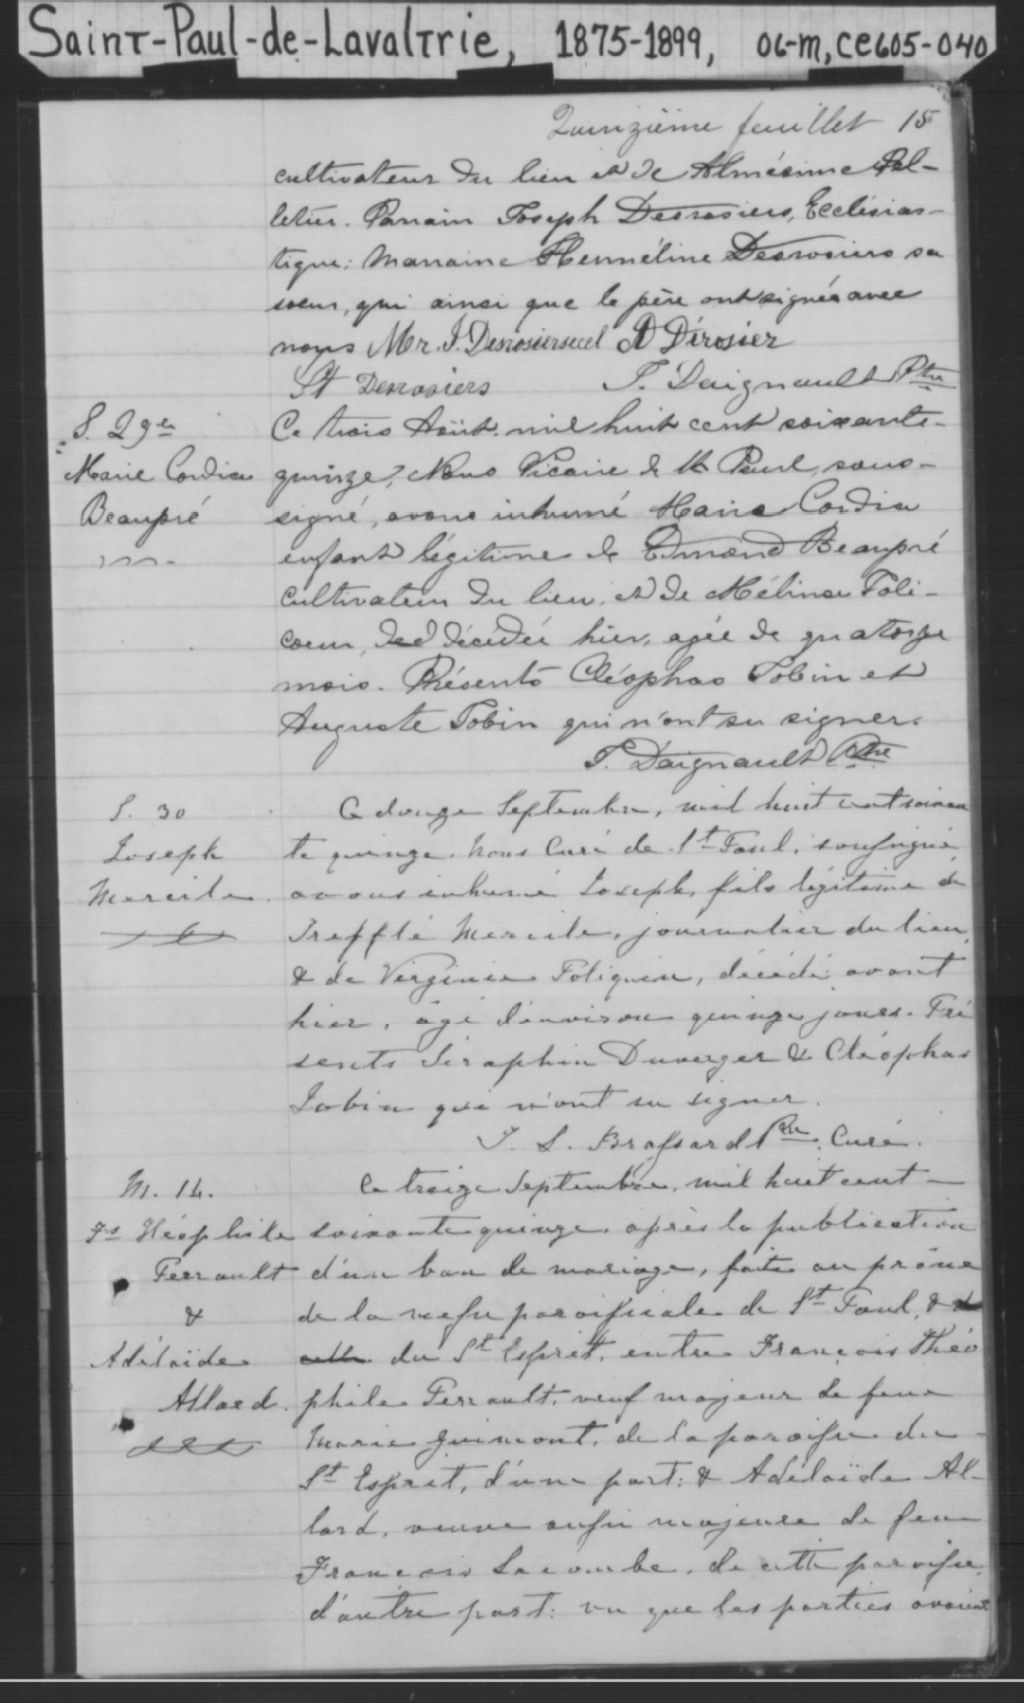 Saint-Paul-de-Lavaltrie, 1875-1899, 06-m, CE605-040
Quinzième feuillet 15
cultivateur du lieu et de Almésime Pel-
letier. Parrain Joseph Desrosiers, Ecclésias-
tique; Marraine Herméline Desrosiers sa
soeur, qui ainsi que le père ont signés avec
nous Mr. J. Desrosiers eccl D Dérosier
St Desrosiers J. Daignault Ptre
S. 29e
Marie Cordia
Beaupré
Ce trois Août, mil huit cent soixante-
quinze, Nous Vicaire de St Paul, sous-
signé, avons inhumé Marie Cordia
enfant légitime de Edmond Beaupré
cultivateur du lieu, et de Mélina Poli-
coeur, décédée hier, agée de quatorze
mois. Présents Cléophas Jobin et
Auguste Jobin qui n'ont su signer.
J. Daignault Ptre
S. 30
Joseph
Mercile
Ce douze Septembre, mil huit cent soixan
te quinze. Nous Curé de St Paul, soussigné
avons inhumé Joseph, fils légitime de
Trefflé Mercile, journalier du lieu,
& de Virginie Potiquin, décédé avant
hier, âgé d'environ quinze jours. Pré
sents Séraphin Duverger & Cléophas
Jobin qui n'ont su signer.
J. S. Brassard Ptre Curé.
M. 14.
Fs Théophile
Perrault
&
Adélaïde
Allard.
Ce treize Septembre, mil huit cent-
soixante quinze, après la publication
d'un ban de mariage, faite au prône
de la messe paroissiale de St Paul, & de
celle du St Esprit, entre François Théo
phile Perrault, veuf majeur de feue
Marie Guimont, de la paroisse du
St Esprit, d'une part: & Adélaïde Al-
lard, veuve aussi majeure de feu
François Lacombe, de cette paroisse,
d'autre part: vu que les parties avaient